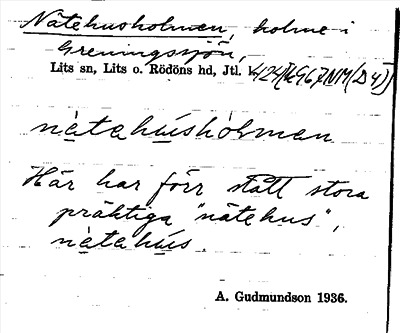 Nätehusholmen, holme i
Greningssjön,
Lits sn, Lits o. Rödöns hd, Jtl.
nàtahúshólmen
Här har förr stått stora
präktiga "nätehus",
nàtahús.
A. Gudmundson 1936.